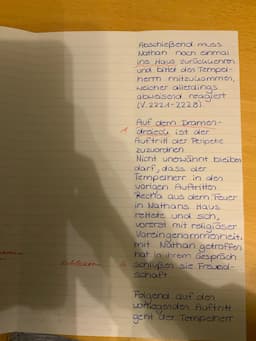 Abschließend muss
Nathan noch einmal
ins Haus zurückkehren
und bittet den Tempel-
herrn mitzukommen,
welcher allerdings
abweisend reagiert
(V. 2221-2228).
Auf dem Dramen-
dreieck ist der
Auftritt der Peripetie
zuzuordnen.
Nicht unerwähnt bleiben
darf, dass der
Tempelherr in den
vorigen Auftritten
Recha aus dem Feuer
in Nathans Haus
rettete und sich,
vorerst mit religiöser
Voreingenommenheit,
mit Nathan getroffen
hat. In ihrem Gespräch
schließen sie Freund-
schaft.
Folgend auf den
vorliegenden Auftritt
geht der Tempelherr